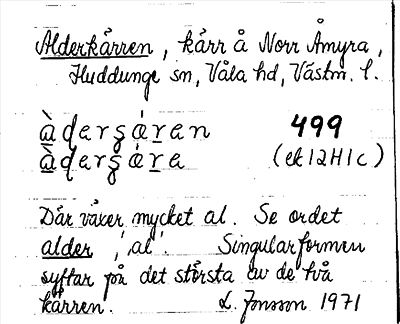 Alderkärren, kärr å Norr Åmyra,
Huddunge sn, Våla hd, Västm. l.
àdersáran 499
àdersára (ek 12H1c)
Där växer mycket al. Se ordet
alder 'al'. Singularformen
syftar på det största av de två
kärren. L. Jonsson 1971